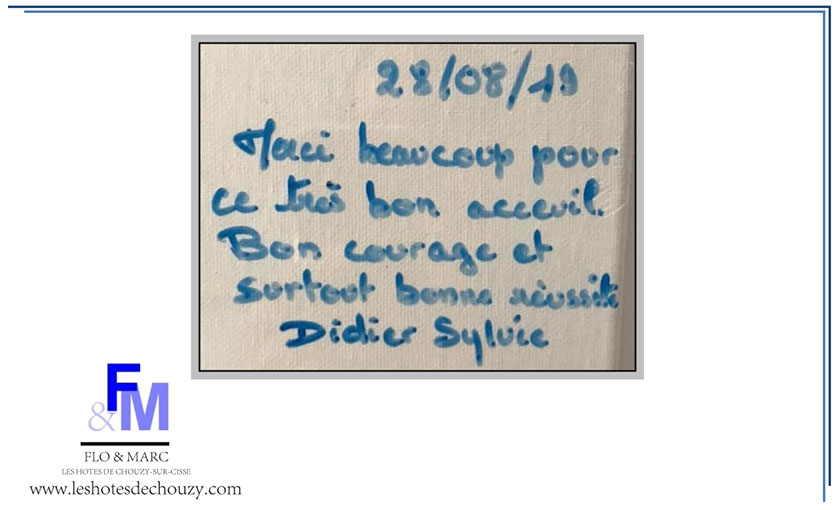 28/08/19
Merci beaucoup pour
ce très bon acceuil.
Bon courage et
surtout bonne réussite
Didier Sylvie
F
&M
FLO & MARC
LES HOTES DE CHOUZY-SUR-CISSE
www.leshotesdechouzy.com